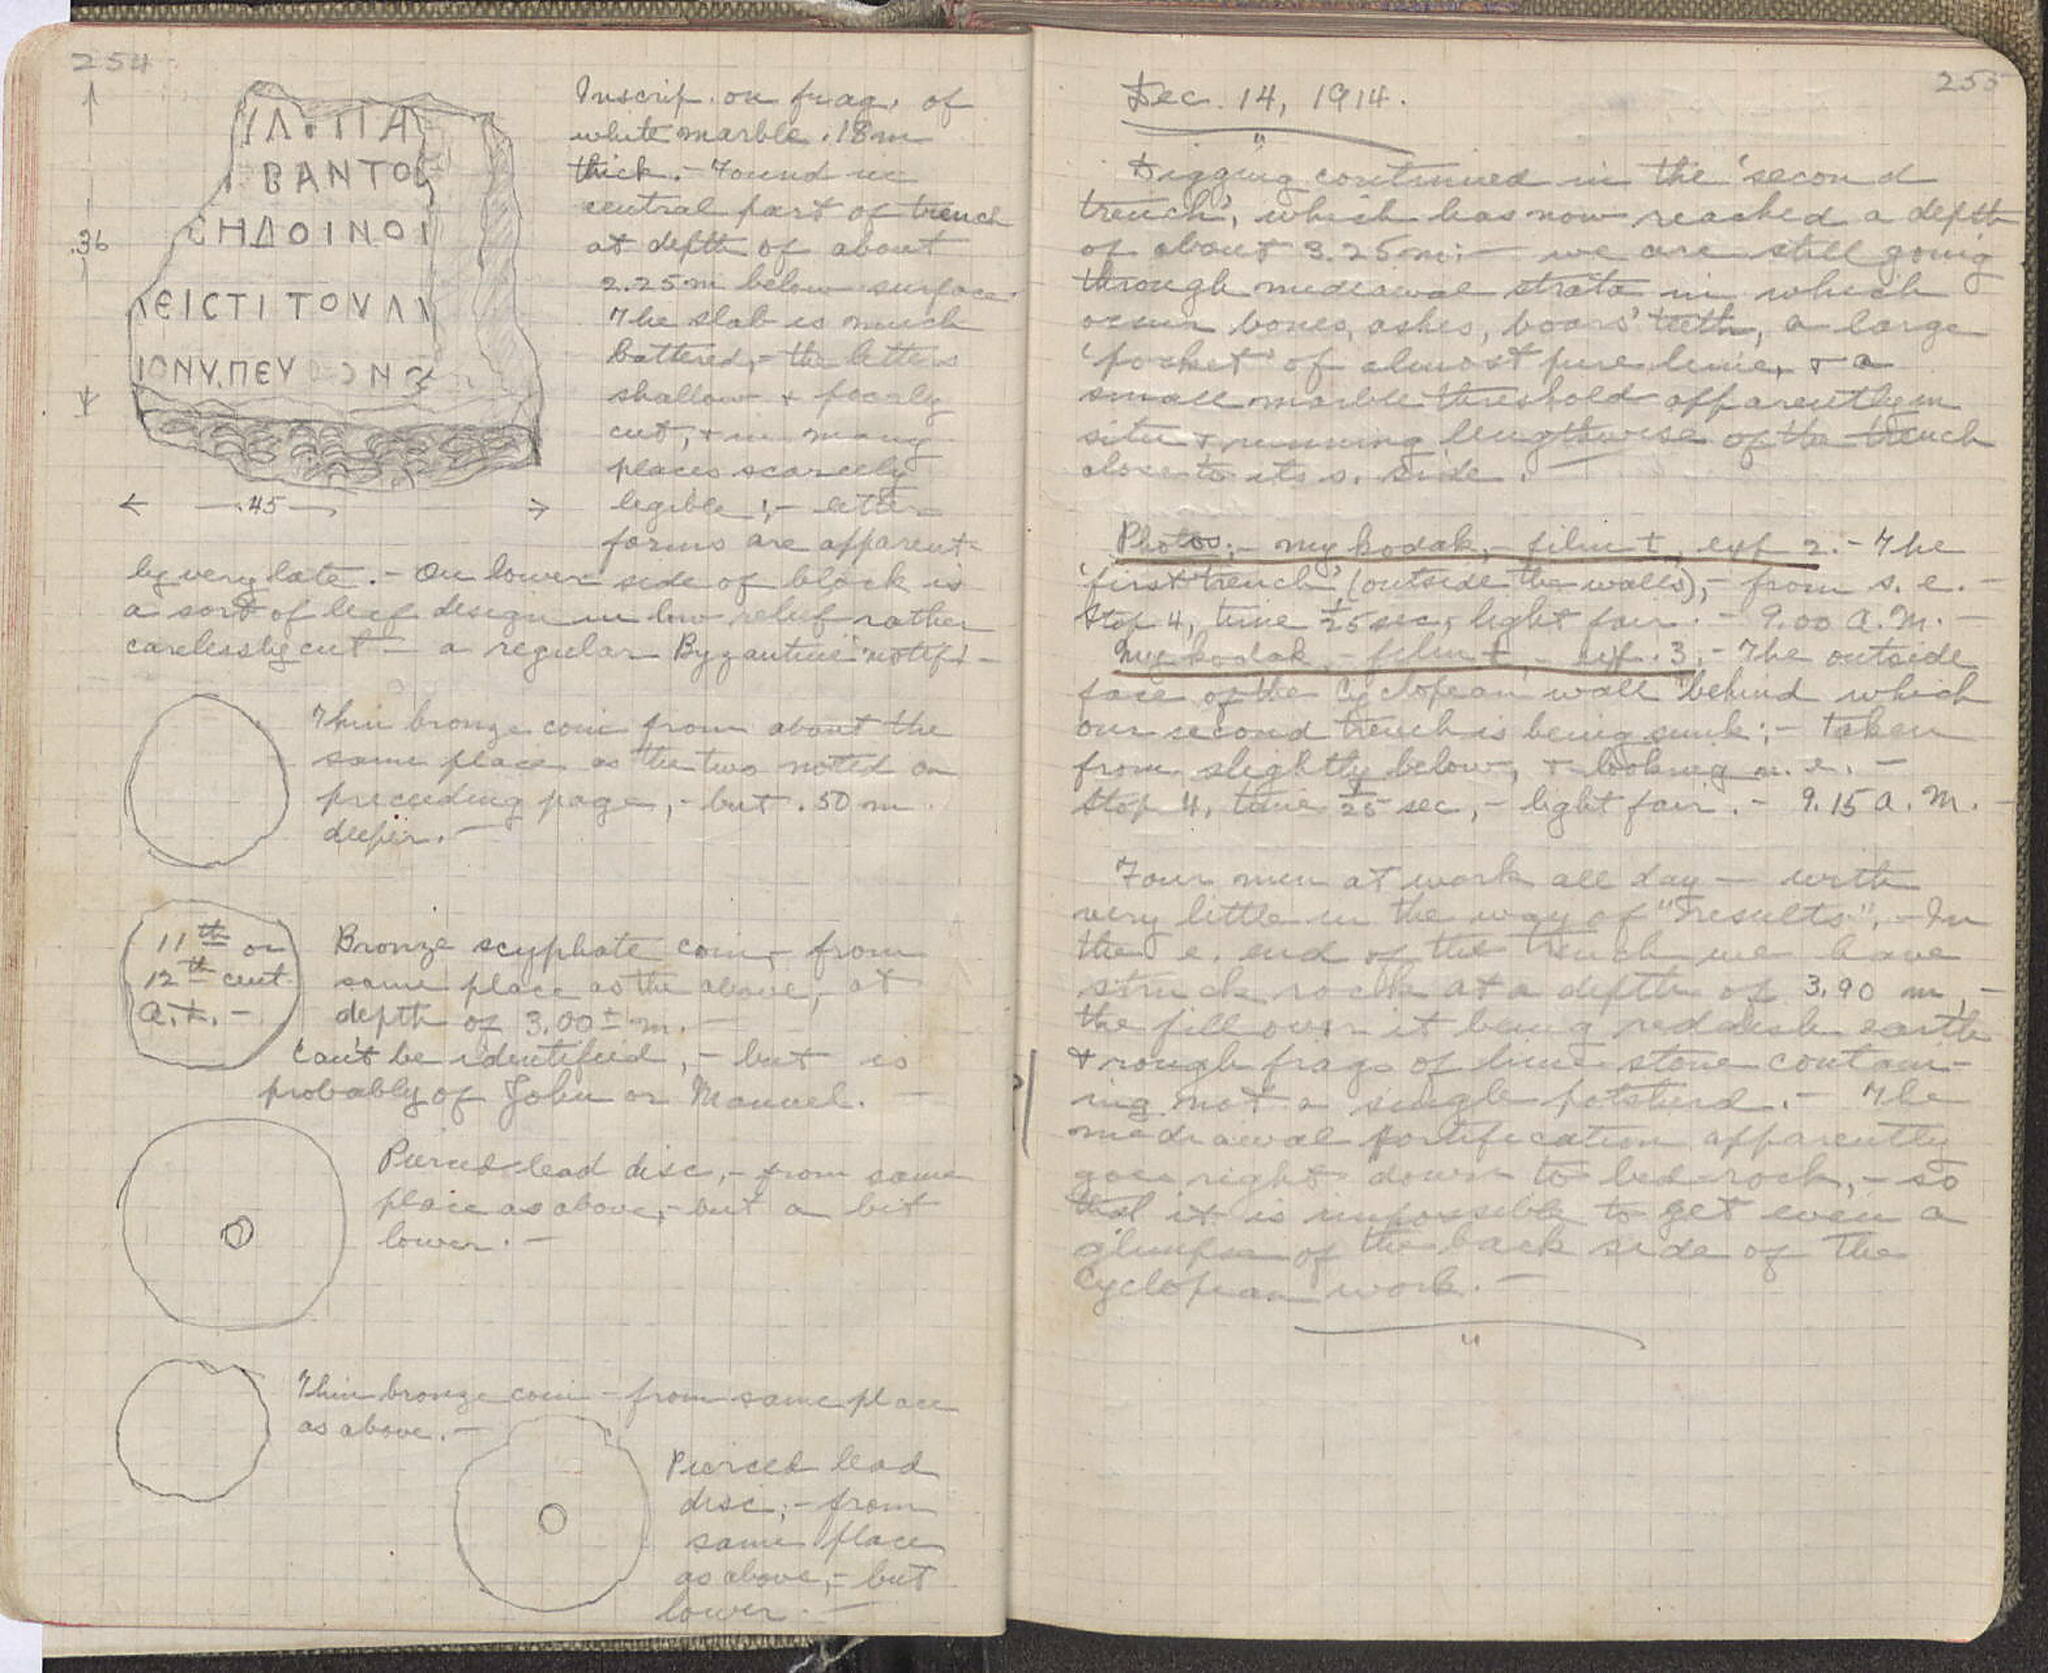 254
ΙΛ•ΠΑ
ΒΑΝΤΟ
ϹΗΔΟΙΝΟΙ
ΛΕΙϹΤΙΤΟΥΛΛ
ΙΟΝΥ.ΠΕΥ ΟΝ
.36
← .45 →
Inscrip. on frag. of
white marble .18m
thick. – Found in
central part of trench
at depth of about
2.25m below surface.
The slab is much
battered, – the letters
shallow + poorly
cut, + in many
places scarcely
legible; – letter
forms are apparent-
ly very late. – On lower side of block is
a sort of leaf design in low relief rather
carelessly cut – a regular Byzantine 'motif'. –
Thin bronze coin from about the
same place as the two noted on
preceeding page, – but .50 m
deeper. –
11th or
12th cent.
A.D. –
Bronze scyphate coin, from
same place as the above, – at
depth of 3.00 ± m. –
Can't be identified, – but is
probably of John or Manuel. –
Pierced lead disc, – from same
place as above, – but a bit
lower. –
Thin bronze coin – from same place
as above. –
Pierced lead
disc, – from
same place
as above, – but
lower. –
255
Dec. 14, 1914.
Digging continued in the 'second
trench', which has now reached a depth
of about 3.25m: – we are still going
through mediaeval strata in which
occur bones, ashes, boars' teeth, a large
'pocket' of almost pure lime, + a
small marble threshold apparently in
situ + running lengthwise of the trench
close to its s. side.
Photos: – my kodak, – film ±, exp 2. – The
'first trench' (outside the walls), – from s. e. –
Stop 4, time 1/25 sec, light fair. – 9.00 A.M. –
My kodak, – film ±, exp. 3. – The outside
face of the Cyclopean wall behind which
our second trench is being sunk; – taken
from slightly below, + looking n. e. –
Stop 4, time 1/25 sec, – light fair. – 9.15 A.M. –
Four men at work all day – with
very little in the way of "results". – In
the e. end of the trench we have
struck rock at a depth of 3.90 m, –
the fill over it being reddish earth
+ rough frags of lime stone contain-
ing not a single potsherd. – The
mediaeval fortification apparently
goes right down to bed-rock, – so
that it is impossible to get even a
glimpse of the back side of the
Cyclopean work. –